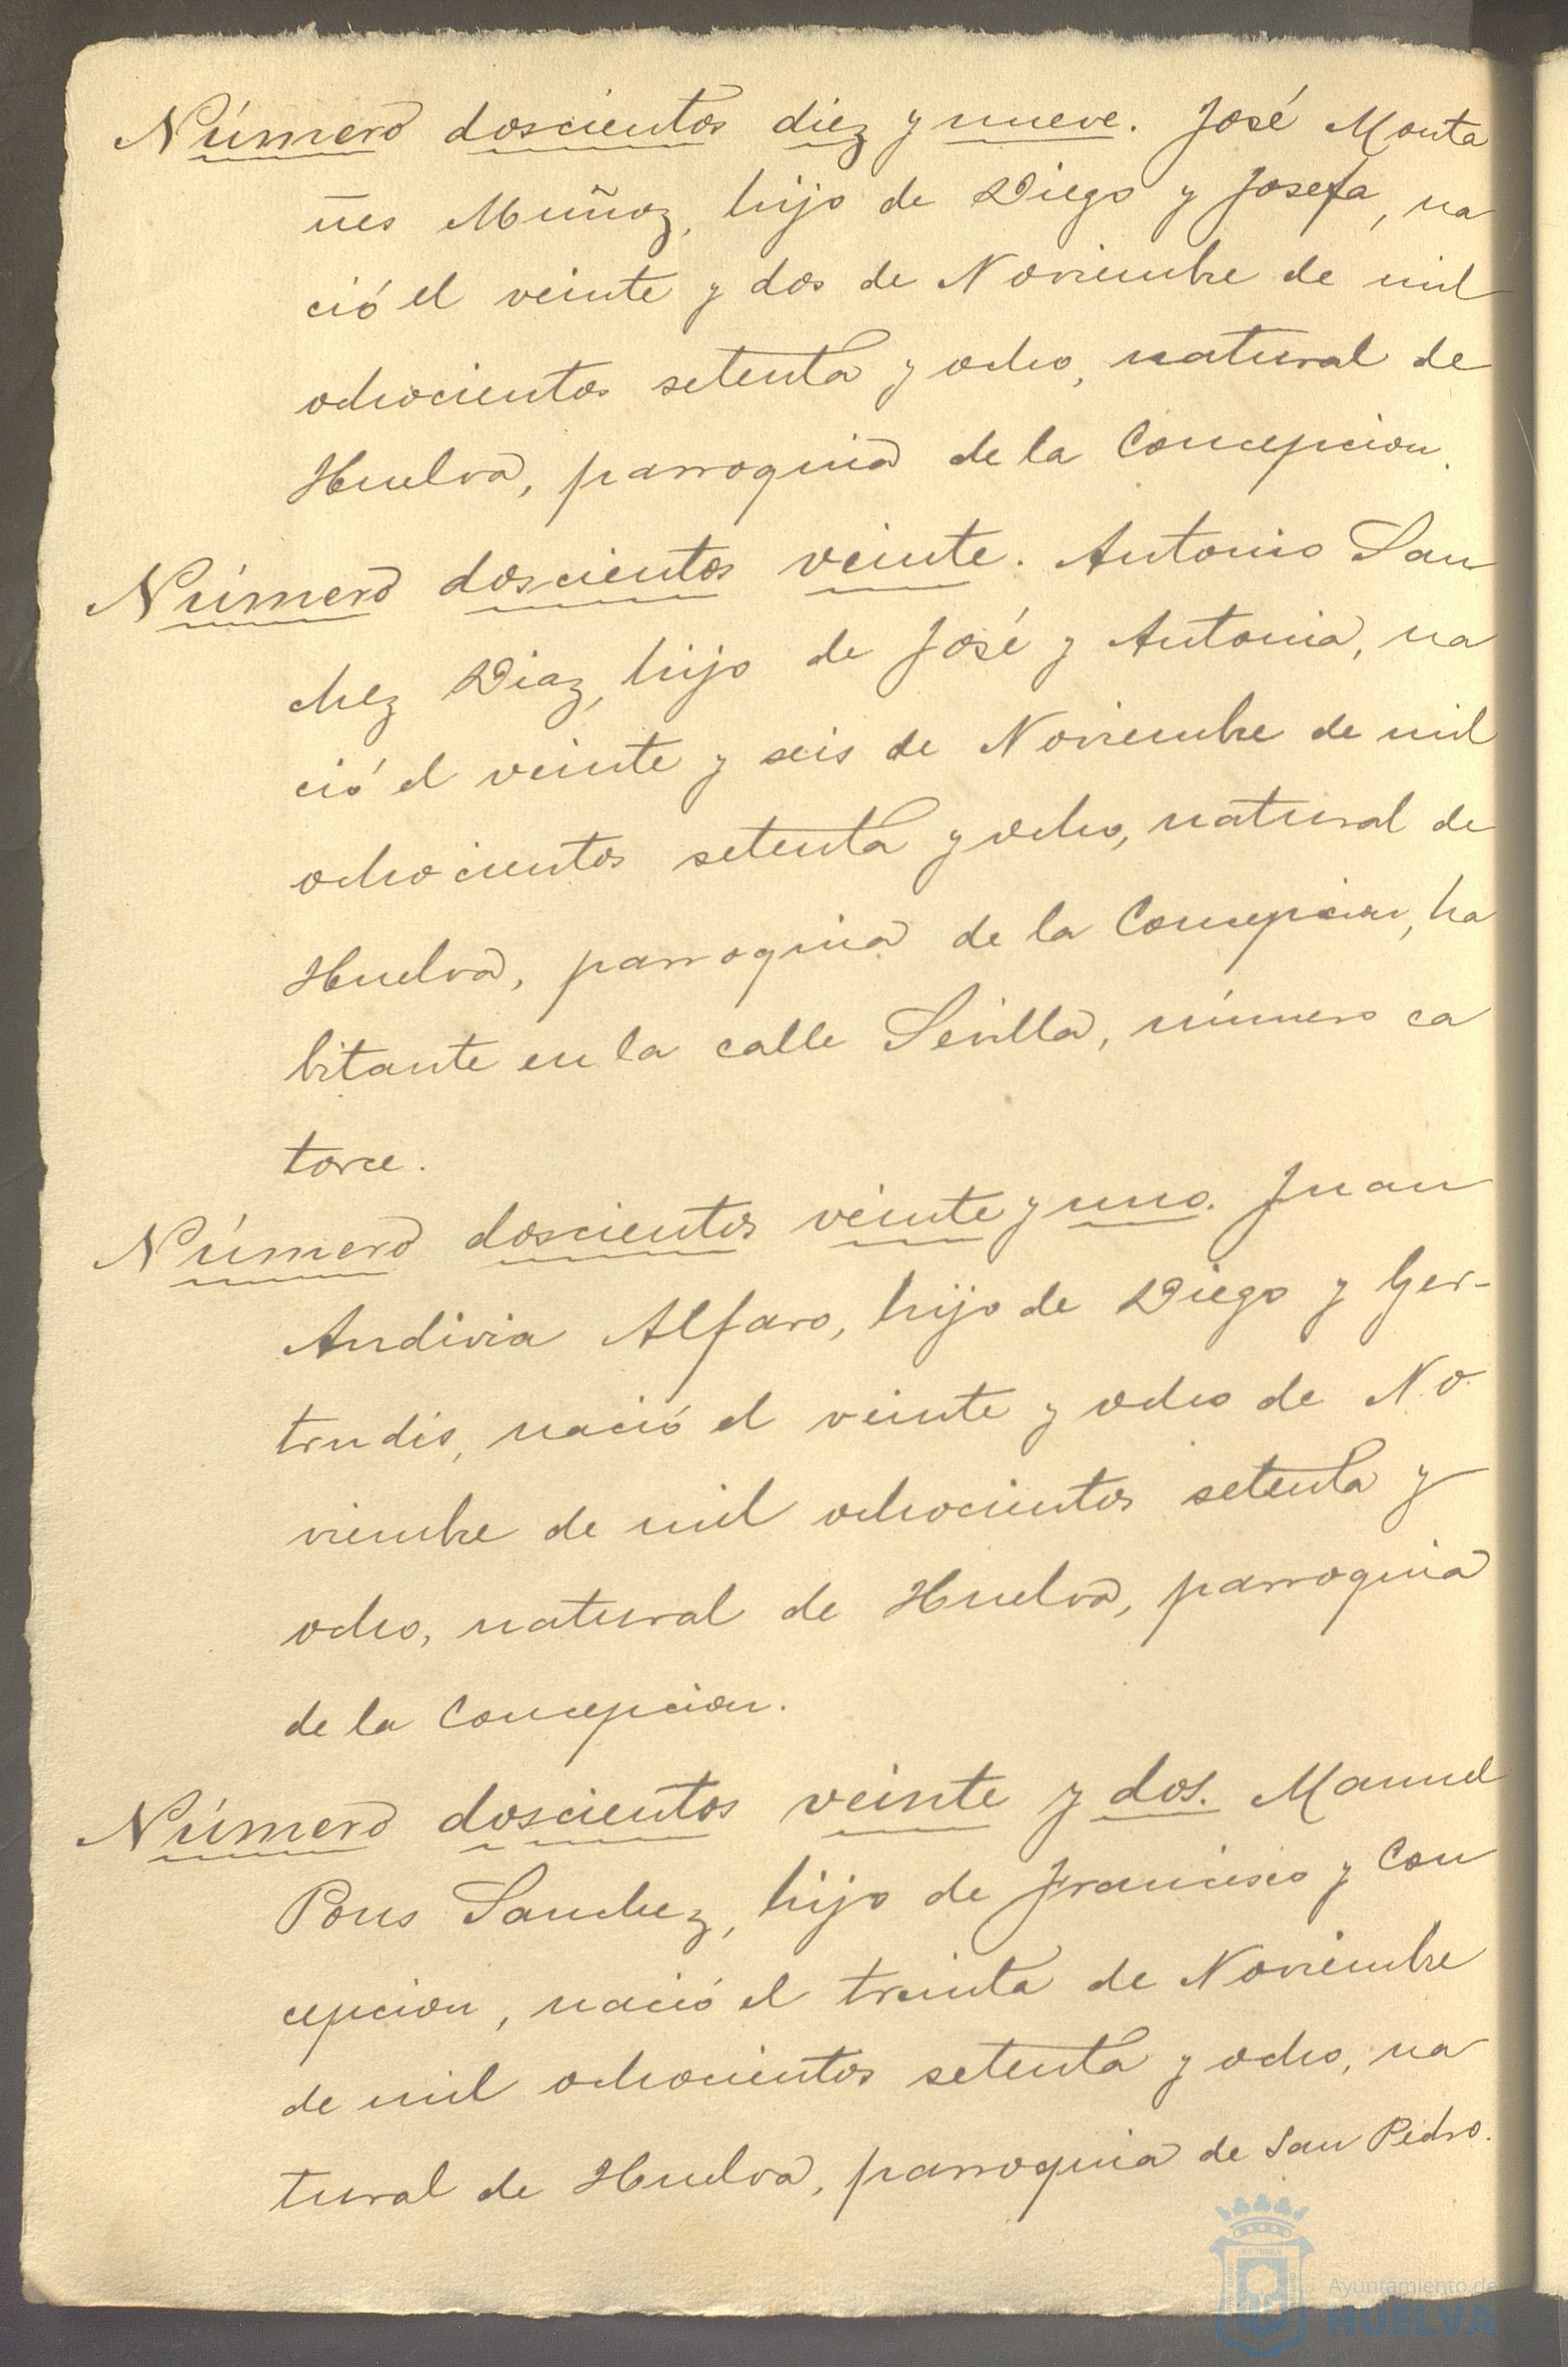 Número doscientos diez y nueve. José Monta
ñes Muñoz, hijo de Diego y Josefa, na
ció el veinte y dos de Noviembre de mil
ochocientos setenta y ocho, natural de
Huelva, parroquia de la Concepcion.
Número doscientos veinte. Antonio San
chez Diaz, hijo de José y Antonia, na
ció el veinte y seis de Noviembre de mil
ochocientos setenta y ocho, natural de
Huelva, parroquia de la Concepcion, ha
bitante en la calle Sevilla, número ca
torce.
Número doscientos veinte y uno. Juan
Andivia Alfaro, hijo de Diego y Ger-
trudis, nació el veinte y ocho de No
viembre de mil ochocientos setenta y
ocho, natural de Huelva, parroquia
de la Concepcion.
Número doscientos veinte y dos. Manuel
Pons Sanchez, hijo de Francisco y Con
cepcion, nació el treinta de Noviembre
de mil ochocientos setenta y ocho, na
tural de Huelva, parroquia de San Pedro.
Ayuntamiento de
HUELVA